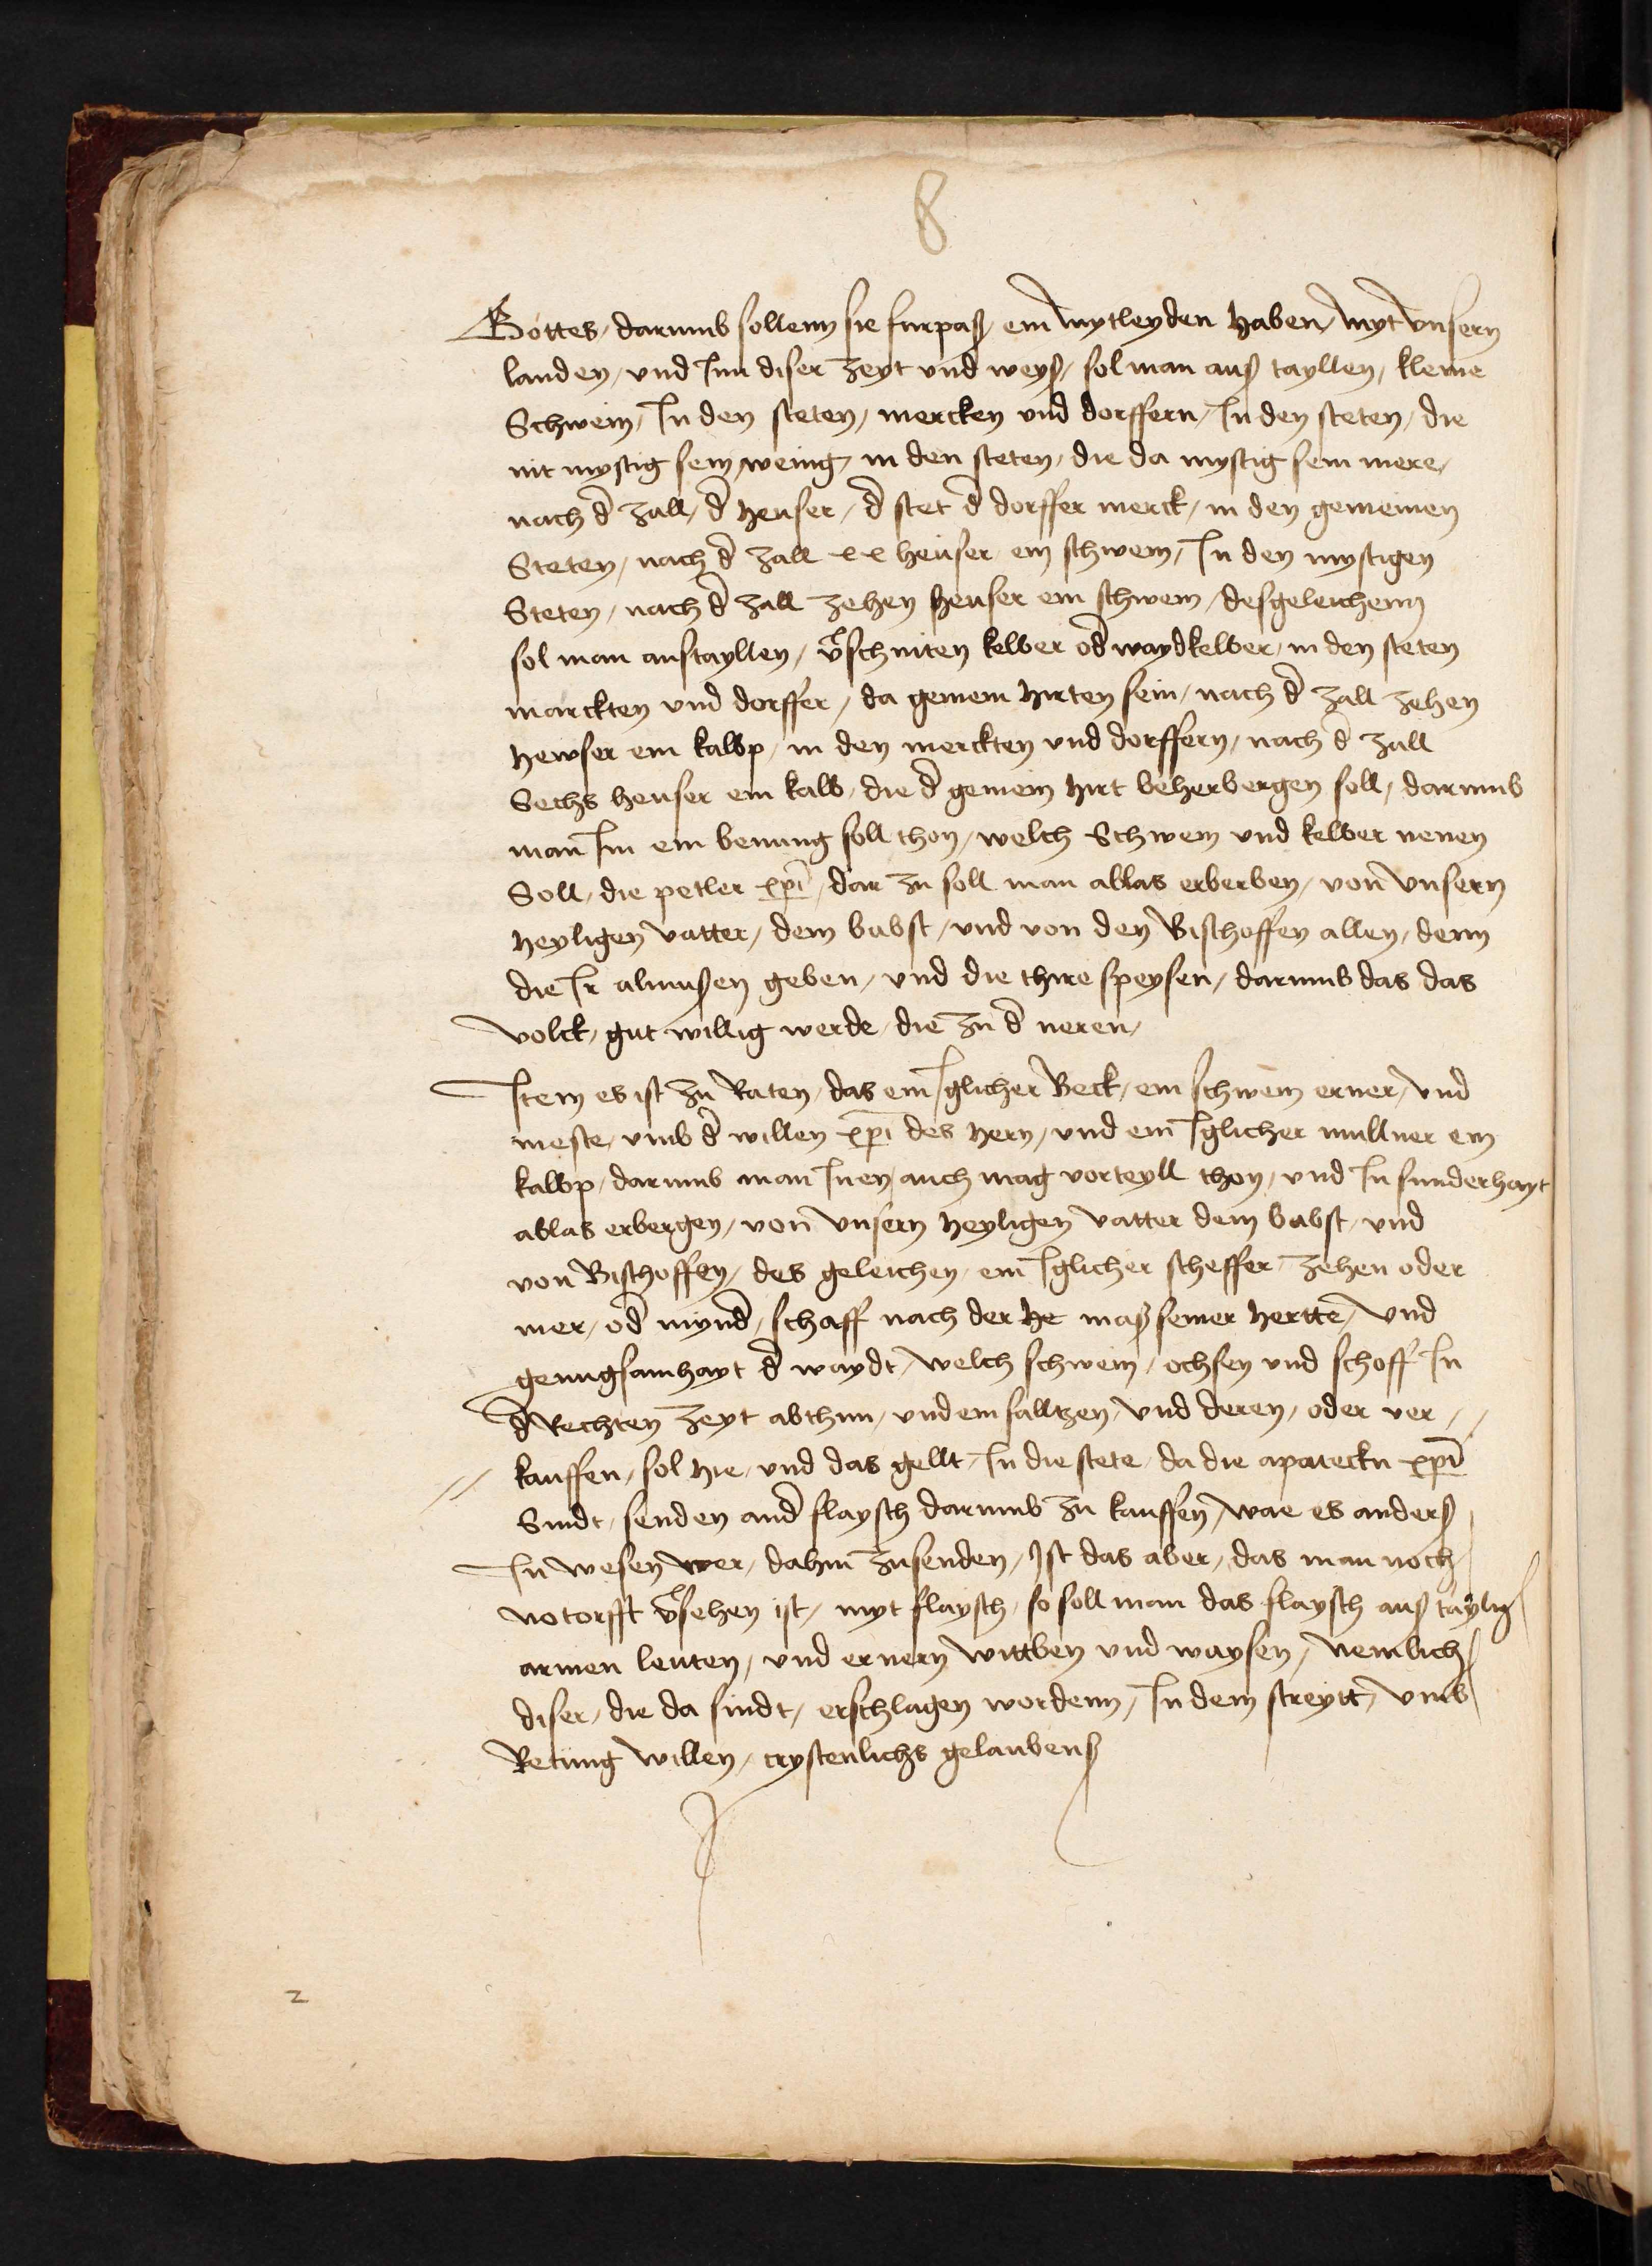 8
Gottes / darumb sollenn sie furpaß / ein mytleyden haben / myt vnsern
landen / vnd Inn diser zeyt vnd weyß / sol man auß tayllen / kleine
Schwein / In den steten / mercken vnd dorffern / In den steten / die
nit mystig sein wenig / in den steten / die da mystig sein mere /
nach d̄ zall / d̄ heuser / d̄ stet d̄ dorffer merck / in den gemeinen
Steten / nach d̄ zall xx heuser ein schwein / In den mystigen
Steten / nach d̄ zall zehen heuser ein schwein / desgeleichenn
sol man austayllen / v̄schniten kelber od̄ waydkelber / in den steten
marckten vnd dorffer / da gemein hirten sein / nach d̄ zall zehen
hewser ein kalbp / in den merckten vnd dorffern / nach d̄ zall
Sechs heuser ein kalb / die d̄ gemein hirt beherbergen soll / darumb
man Im ein benung soll thon / welch Schwein vnd kelber nenen
Soll / die petler xp̄i / dar zu soll man ablas erberben / von vnsern
heyligen vatter / dem babst / vnd von den Bischoffen allen / denn
die Ir almußen geben / vnd die thire speysen / darumb das das
volck / gut willig werde / die zu d̄ neren /
Item es ist zu Raten / das ein Iglicher Beck / ein schwein erner / vnd
meste / vmb d̄ willen xp̄i des hern / vnd ein Iglicher mullner ein
kalbp / darumb man Inen auch mag vorteyll thon / vnd In sunderhayt
ablas erbergen / von vnsern heyligen vatter dem babst / vnd
von Bischoffen / des geleichen / ein Iglicher scheffer / zehen oder
mer / od̄ mynd̄ / schaff nach der he maß seiner hertte / vnd
genugsamhayt d̄ waydt / welch schwein / ochsen vnd schoff In
d̄ Rechten zeyt abthun / vnd ein salltzen / vnd deren / oder ver //
// kauffen / sol hie / vnd das gellt / In die stete / da die apateckn xp̄i
Sindt / senden and̄ flaysch darumb zu kauffen / wae es anderß
In wesen wer / dahin zusenden / Ist das aber / das man noch
notorfft v̄sehen ist / myt flaysch / so soll man das flaysch auß taylen
armen leuten / vnd ernern wittben vnd waysen / nemlich
diser / die da sindt / erschlagen wordenn / In dem streytt / vmb
Retung willen / crystenlichs gelaubenß
2